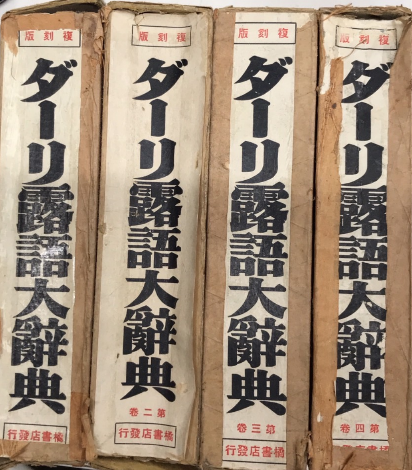 復刻版
ダーリ露語大辭典
橘書店發行
復刻版
ダーリ露語大辭典
第二卷
橘書店發行
復刻版
ダーリ露語大辭典
第三卷
橘書店發行
復刻版
ダーリ露語大辭典
第四卷